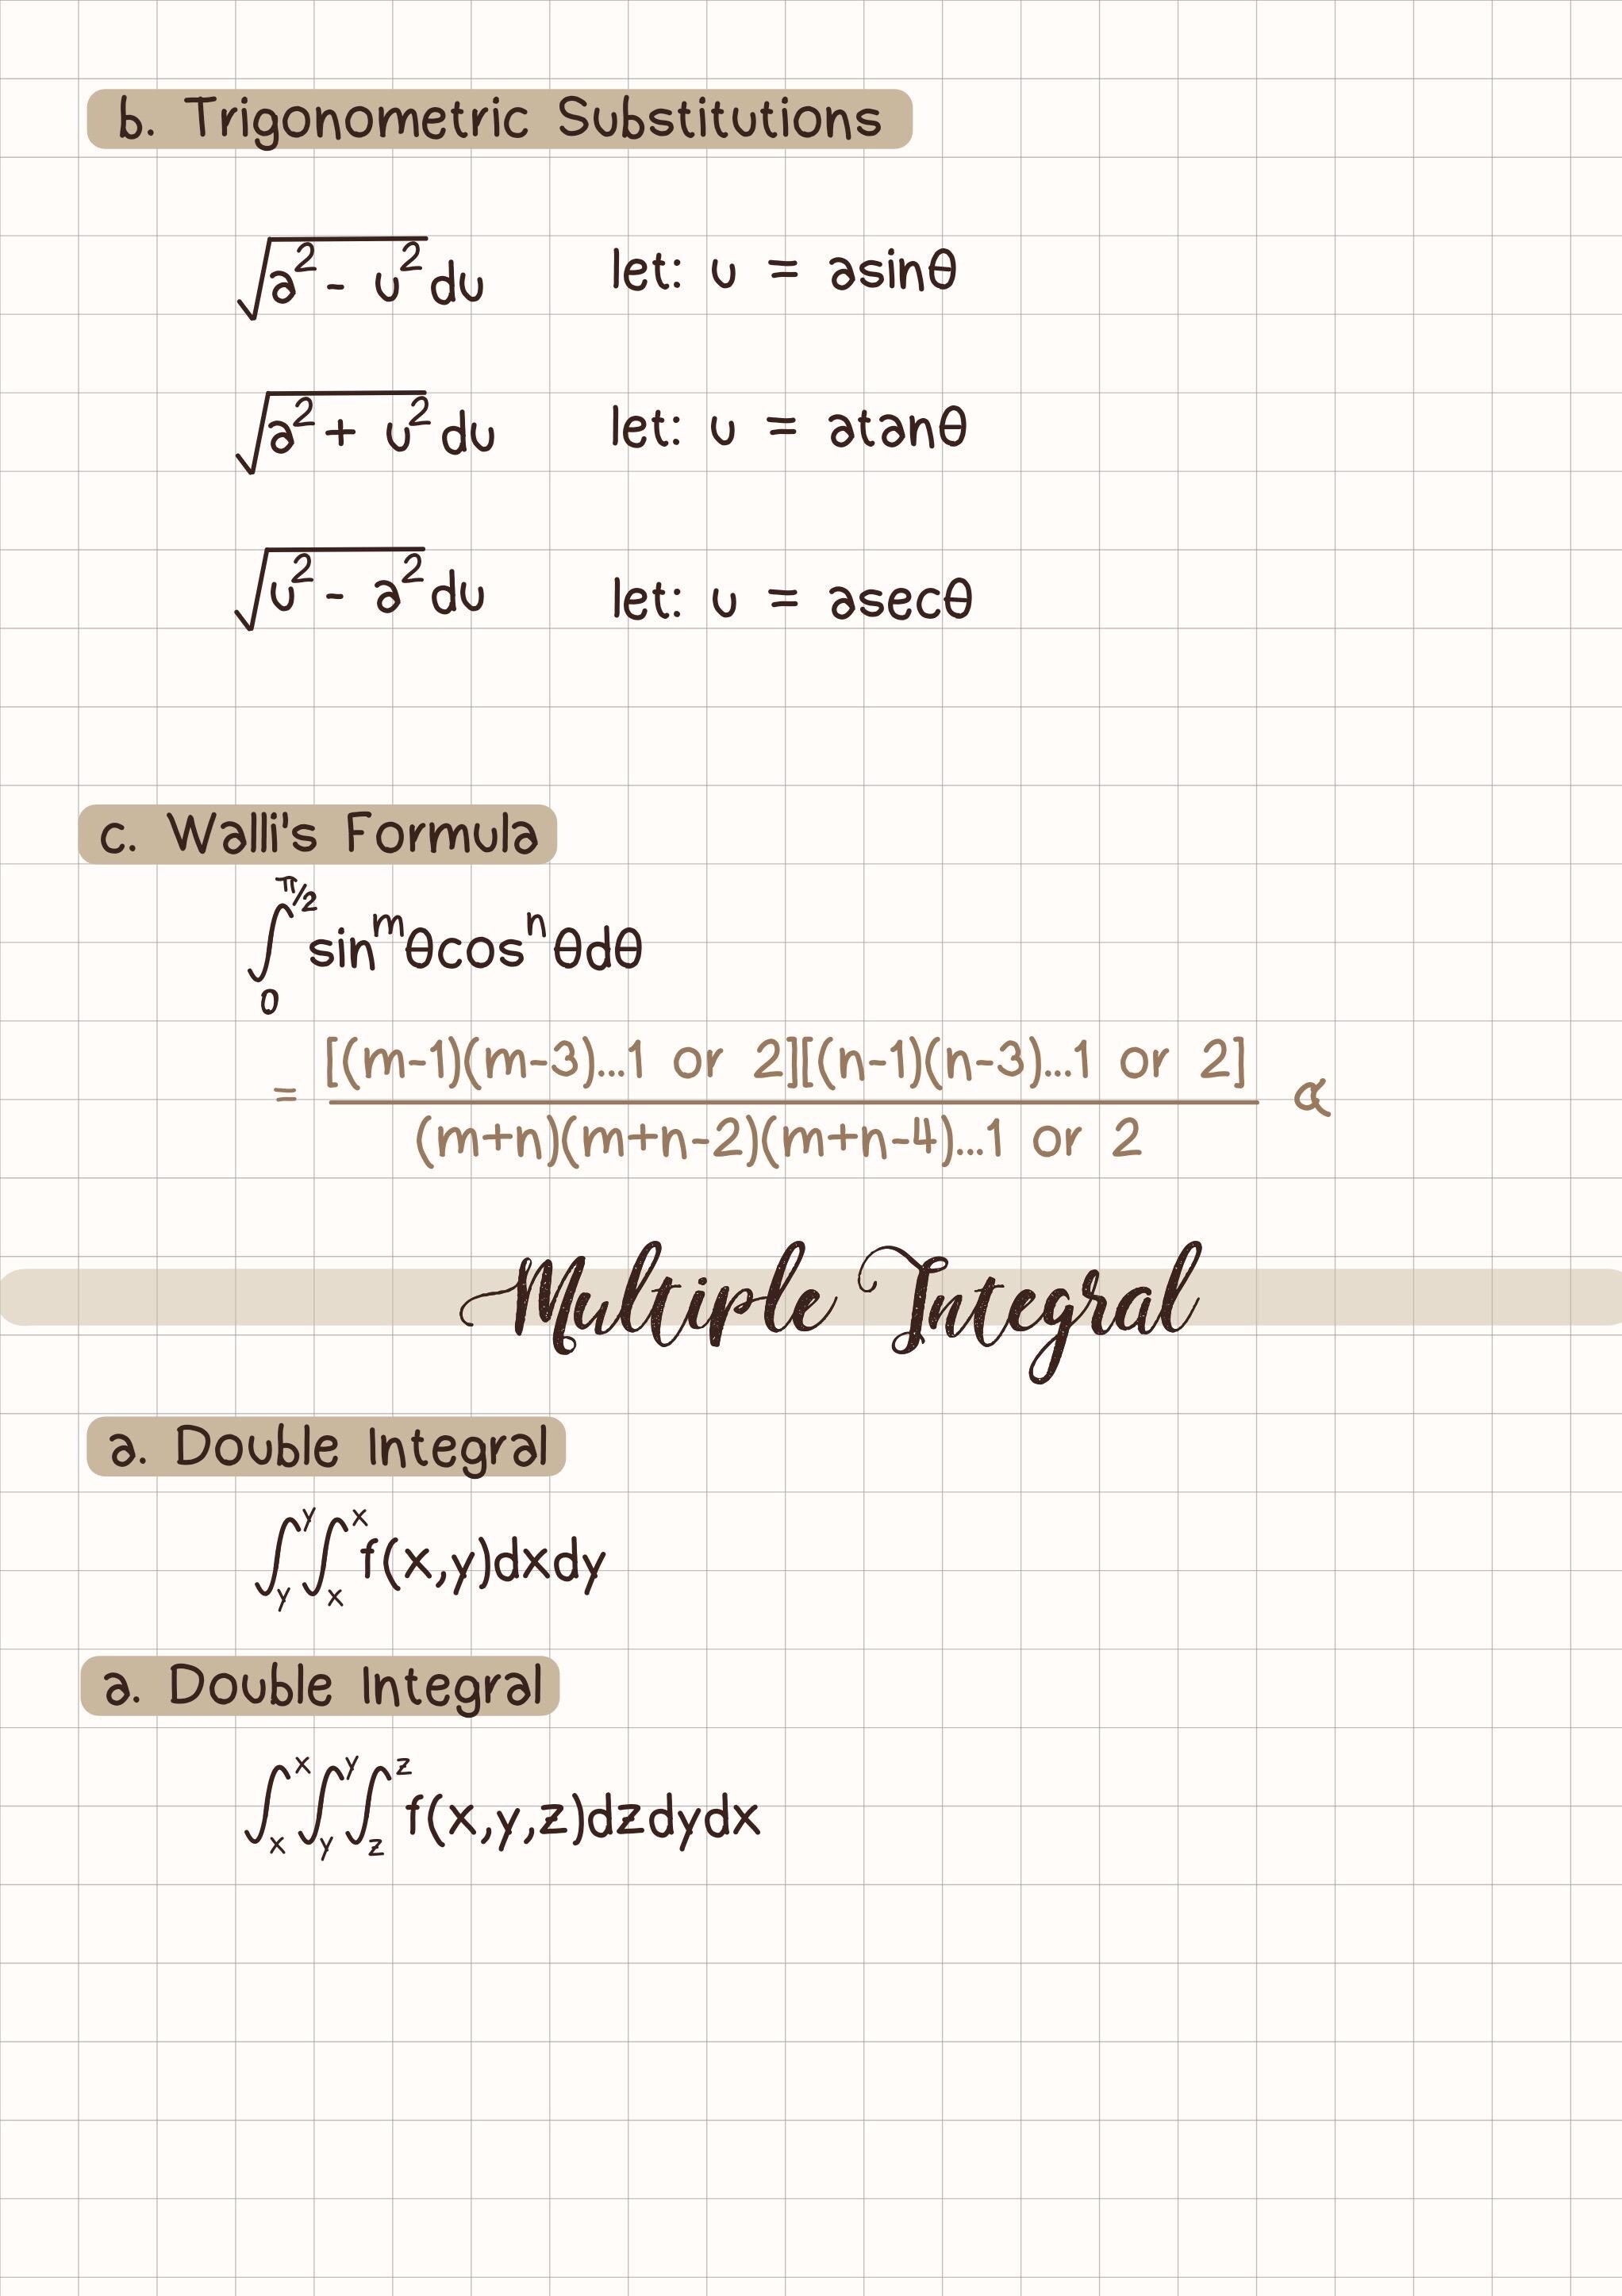 b. Trigonometric Substitutions
√a²- u² du let: u = asinθ
√a²+ u² du let: u = atanθ
√u²- a² du let: u = asecθ
c. Walli's Formula
∫₀^π/2 sin^mθcos^nθdθ
= [(m-1)(m-3)...1 or 2][(n-1)(n-3)...1 or 2] / (m+n)(m+n-2)(m+n-4)...1 or 2 α
Multiple Integral
a. Double Integral
∫_y^y ∫_x^x f(x,y)dxdy
a. Double Integral
∫_x^x ∫_y^y ∫_z^z f(x,y,z)dzdydx